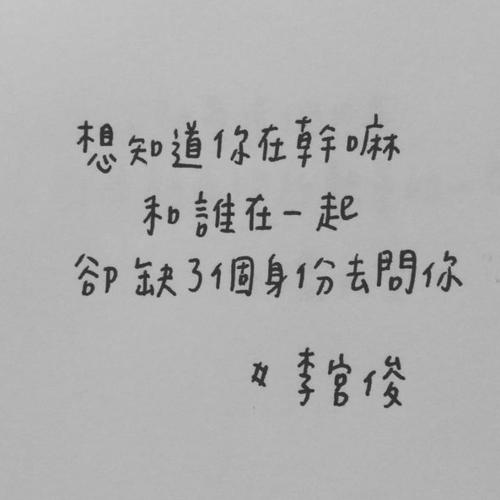 想知道你在幹嘛
和誰在一起
卻缺了個身份去問你
〃李宮俊